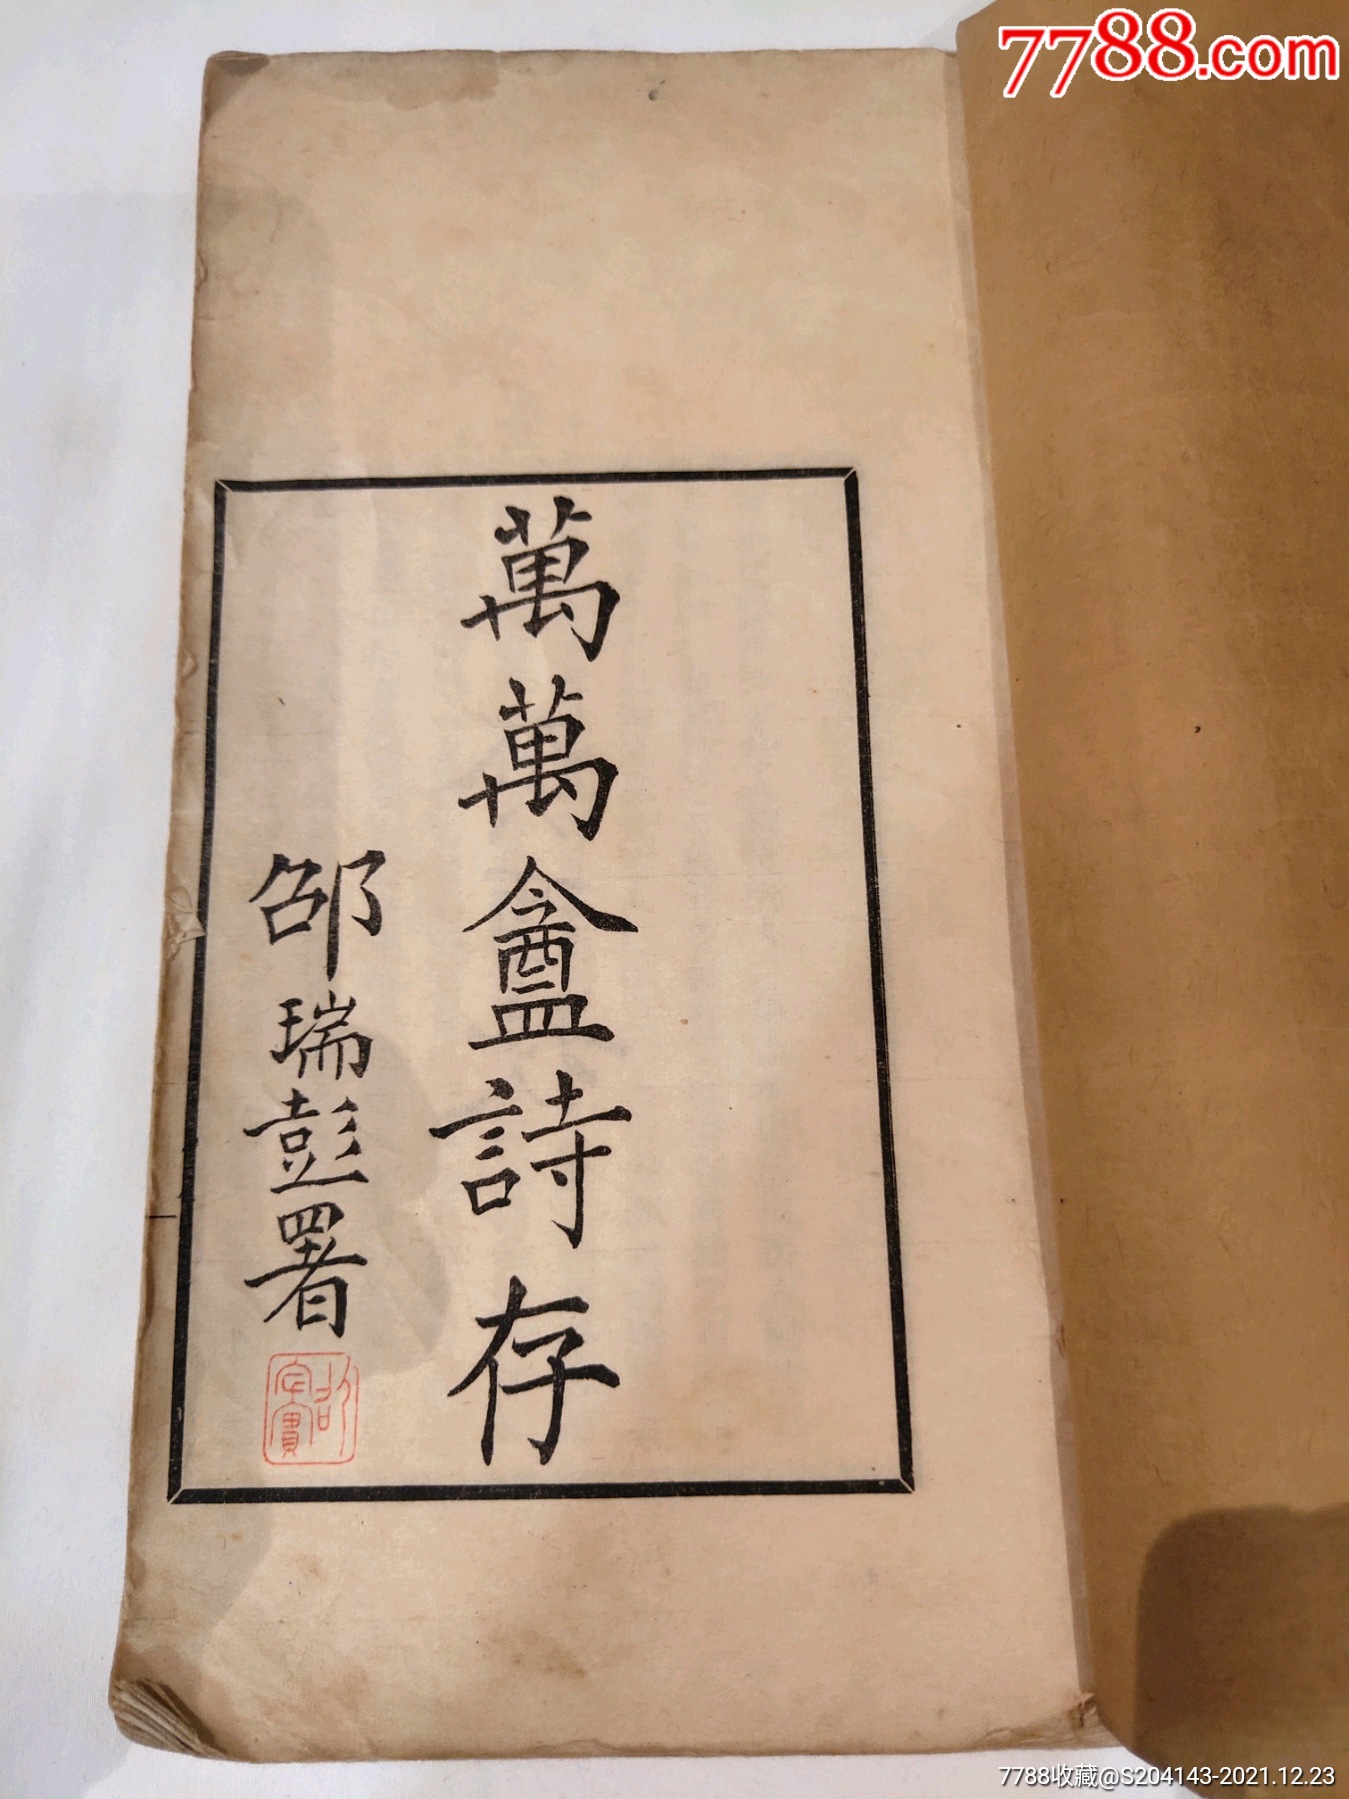 7788.com
萬萬盦詩存
邵瑞彭署
7788收藏@S204143-2021.12.23